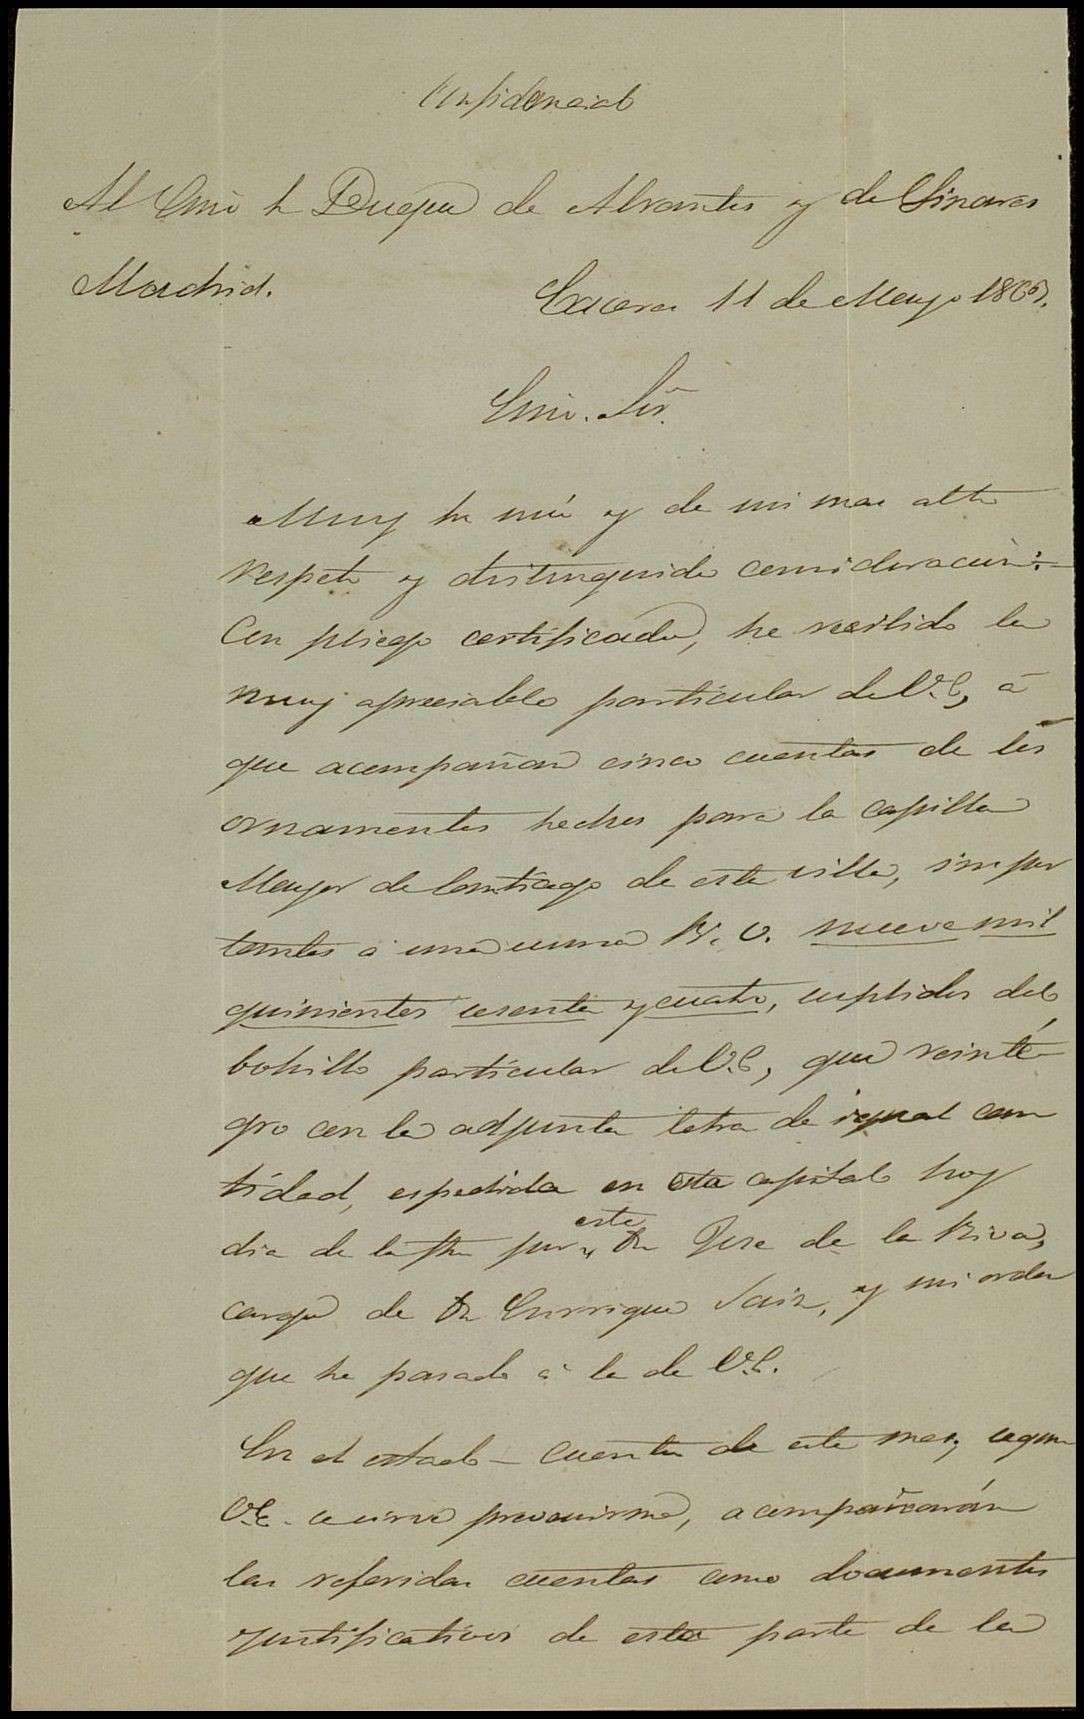 Confidencial
Al Emô Sr Duque de Abrantes y de Linares
Madrid.
Caceres 11 de Mayo 186
Emô. Sôr.
Muy Sr mío y de mi mas alto
respeto y distinguida consideracion:
Con pliego certificado, he recibido la
muy apreciable particular de V.E, á
que acompañan cinco cuentas de los
ornamentos hechos para la capilla
Mayor de Santiago de esta villa, impor
tantes á una suma R. v. nueve mil
quinientos sesenta y cuatro, suplidos del
bolsillo particular de V.E, que reinté-
gro con la adjunta letra de igual can
tidad, espedida en esta capital hoy
dia de la fha por este Dn Jose de la Riva,
cargo de Dn Enrrique Sainz, y mi orden
que he pasado á la de V.E.
En el estado-cuenta de este mes, segun
V.E. se sirve prevenirme, acompañarán
las referidas cuentas como documentos
justificativos de esta parte de la